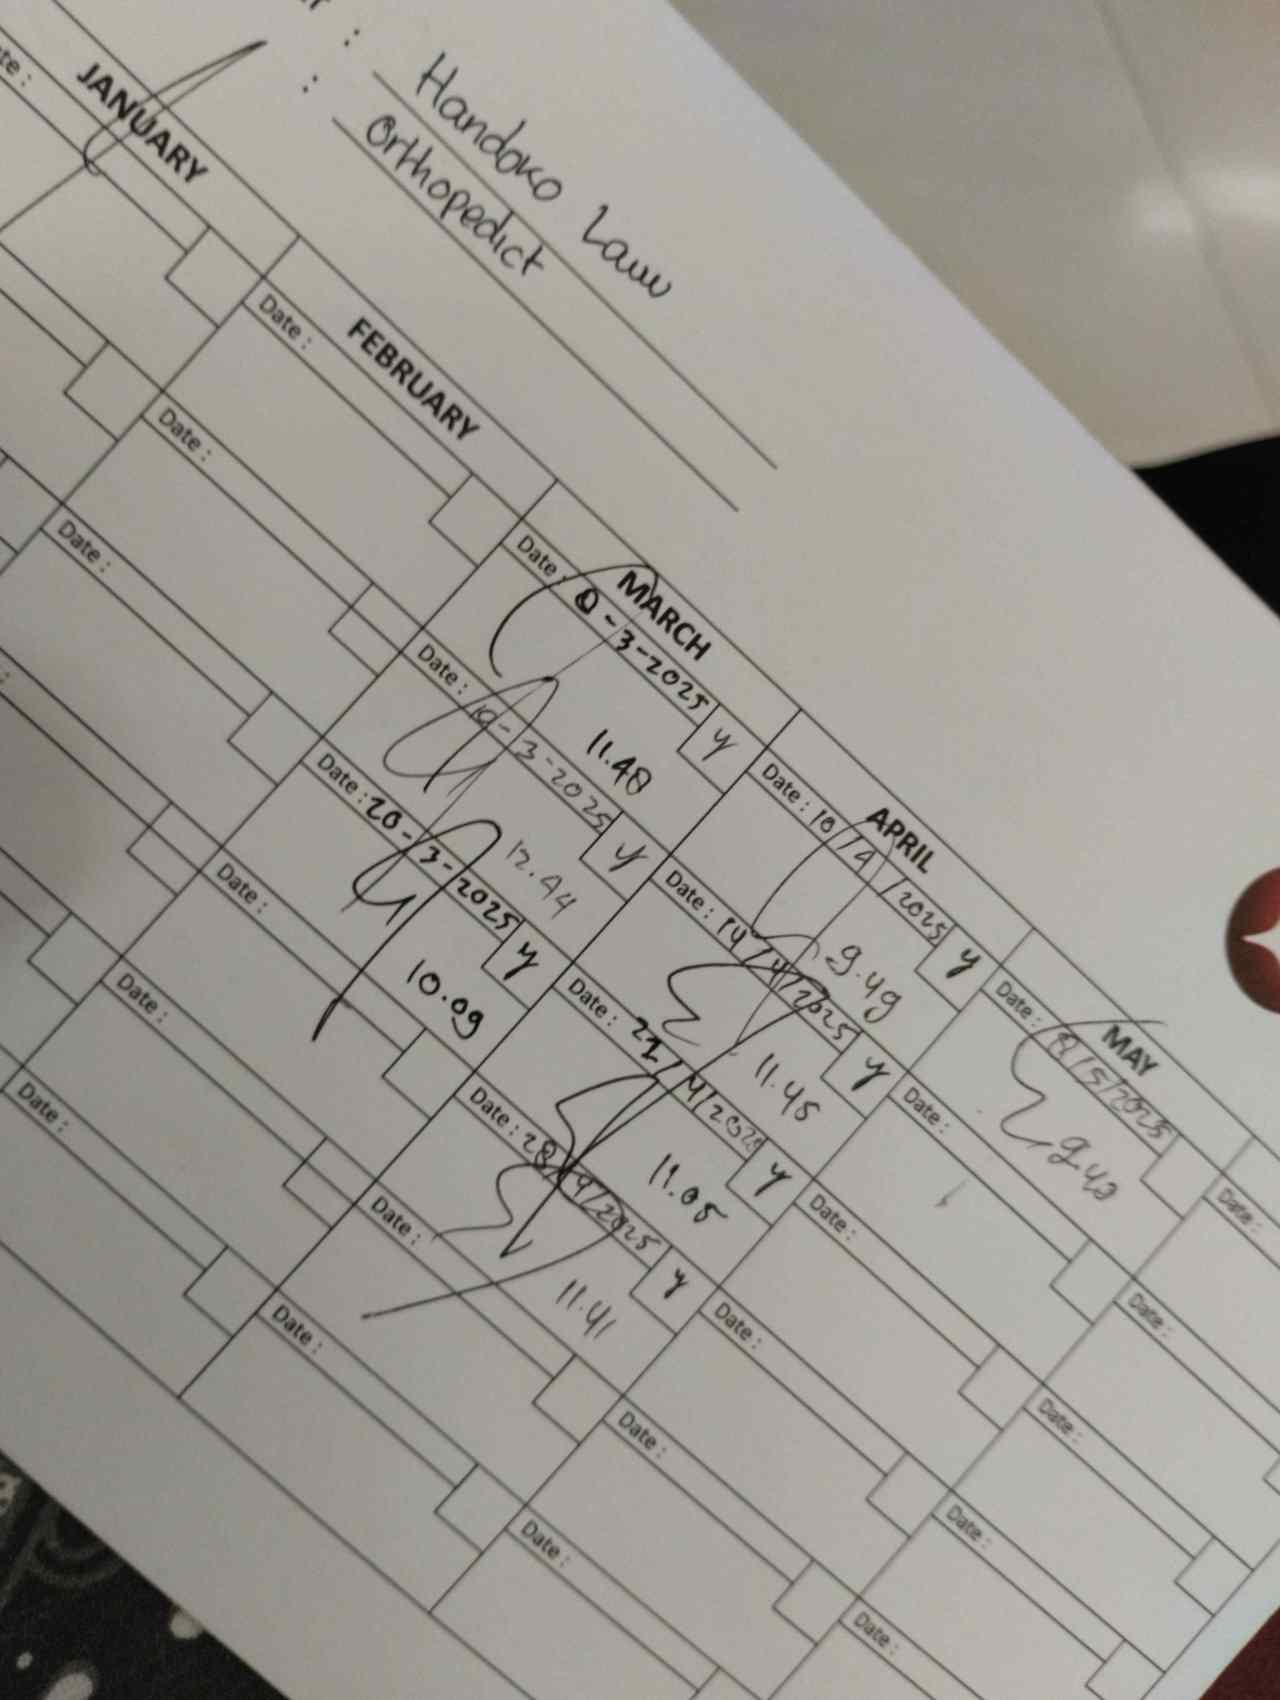 : Handoko Lauw
: Orthopedict
JANUARY
FEBRUARY
MARCH
APRIL
MAY
Date :
Date : -3-2025 y
11.48
Date : 10/4/2025 y
9.49
Date : 8/5/2025
9.42
Date :
Date :
Date : 19-3-2025 y
12.44
Date : 14/4/2025 y
11.45
Date :
Date :
Date :
Date : 20-3-2025 y
10.09
Date : 22/4/2025 y
11.05
Date :
Date :
Date :
Date : 28/4/2025 y
11.41
Date :
Date :
Date :
Date :
Date :
Date :
Date :
Date :
Date :
Date :
Date :